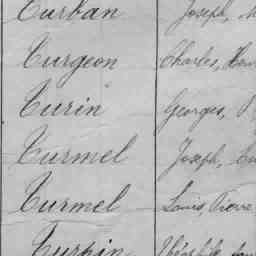 Turban Joseph,
Turgeon Charles,
Turin Georges,
Turmel Joseph,
Turmel Louis, Pierre
Turpin Théophile,